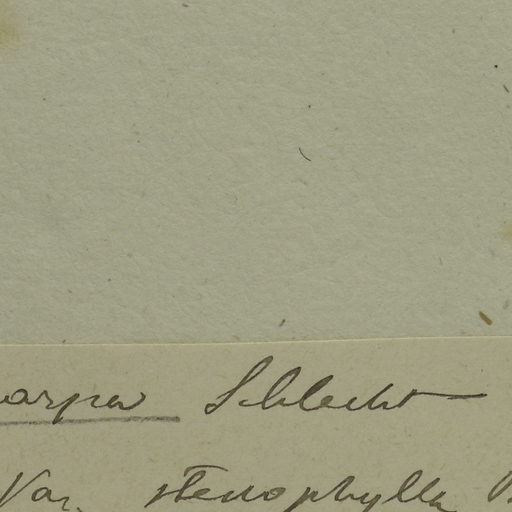 carpa Schlecht
Var. stenophylla